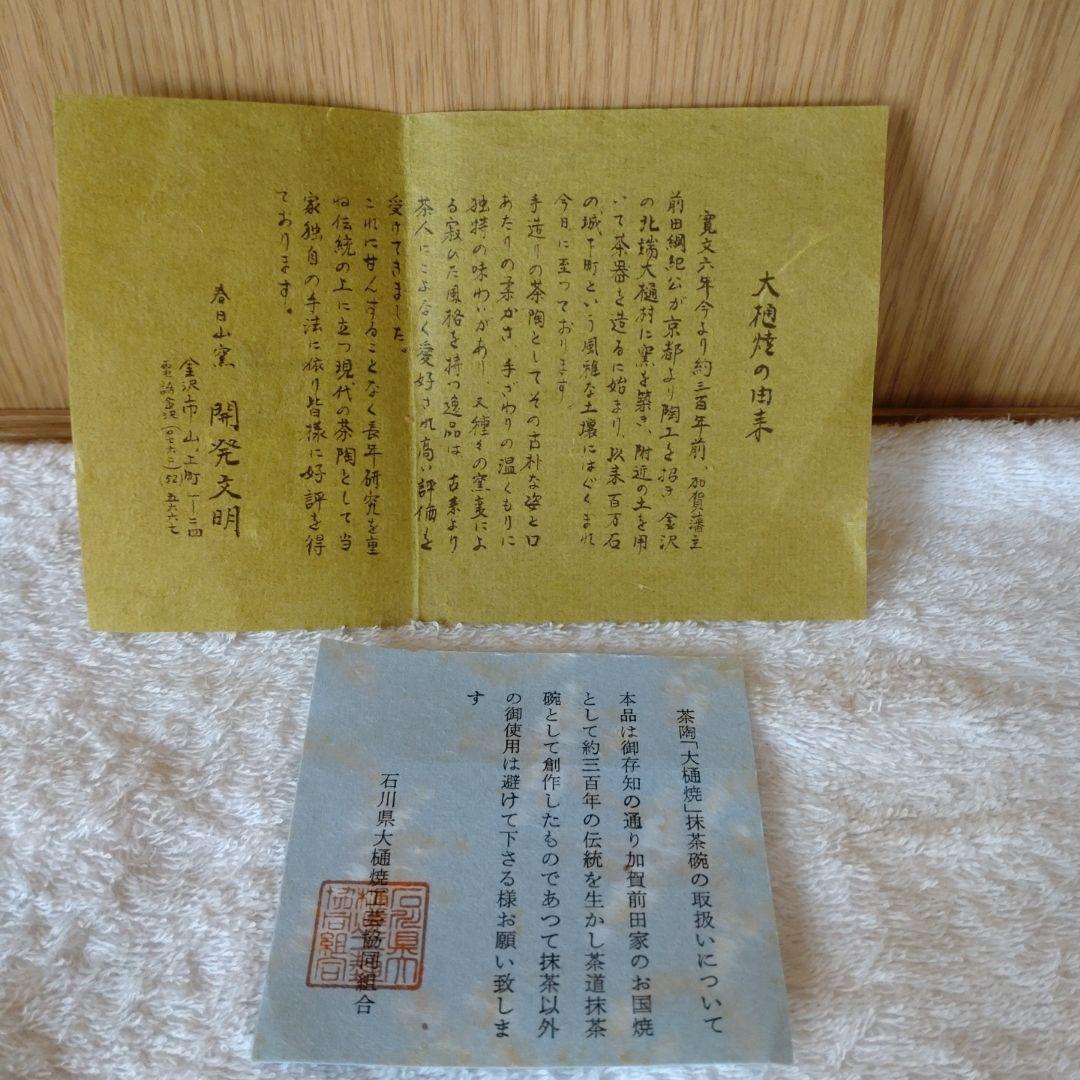 大樋焼の由来
寛文六年今より約三百年前、加賀藩主
前田綱紀公が京都より陶工を招き金沢
の北端大樋村に窯を築き、附近の土を用
いて茶器を造るに始まり、以来百万石
の城下町という風雅な土壌にはぐくまれ
今日に至っております。
手造りの茶陶としてその古朴な姿と口
あたりの柔かさ、手ざわりの温くもりに
独特の味わいがあり、又種々の窯変によ
る寂びた風格を持つ逸品は、古来より
茶人にこよなく愛好され高い評価を
受けてきました。
これに甘んずることなく長年研究を重
ね伝統の上に立つ現代の茶陶として当
家独自の手法に依り皆様に好評を得
ております。
春日山窯 開発文明
金沢市山の上町一ー二四
電話金沢(〇七六二)52五六六七
茶陶「大樋焼」抹茶碗の取扱いについて
本品は御存知の通り加賀前田家のお国焼
として約三百年の伝統を生かし茶道抹茶
碗として創作したものであつて抹茶以外
の御使用は避けて下さる様お願い致しま
す
石川県大樋焼工芸協同組合
石川県大
樋焼工芸
協同組合